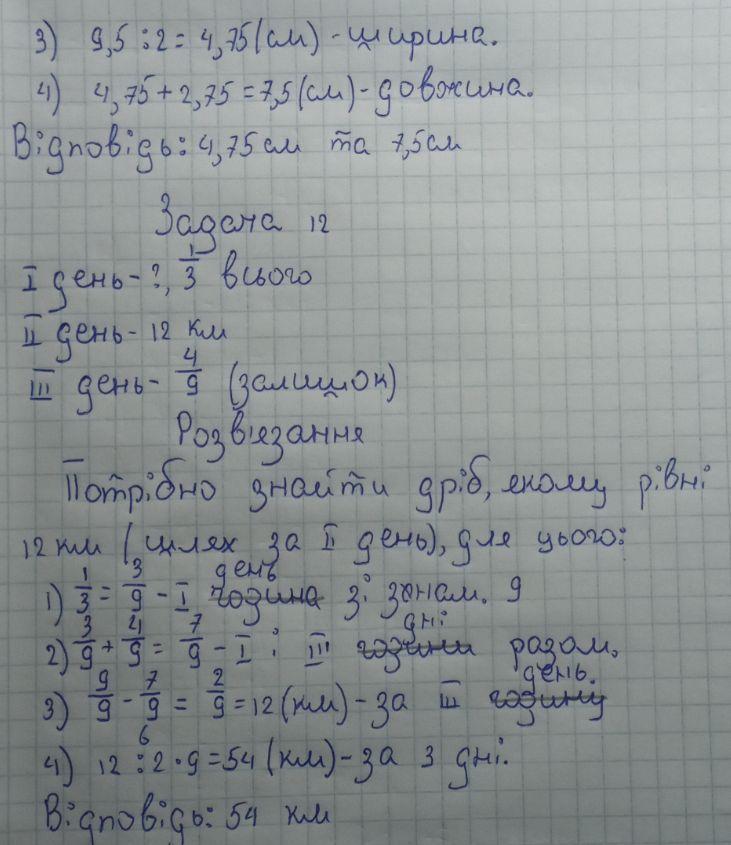 3) 9,5 : 2 = 4,75 (см) - ширина.
4) 4,75 + 2,75 = 7,5 (см) - довжина.
Відповідь: 4,75 см та 7,5 см
Задача 12
I день - ?, 1/3 всього
II день - 12 км
III день - 4/9 (залишок)
Розв'язання
Потрібно знайти дріб, якому рівні
12 км (шлях за II день), для цього:
1) 1/3 = 3/9 - I година день зі знам. 9
2) 3/9 + 4/9 = 7/9 - I і III години дні разом.
3) 9/9 - 7/9 = 2/9 = 12 (км) - за III годину день.
4) 12 : 2 · 9 = 54 (км) - за 3 дні.
6
Відповідь: 54 км